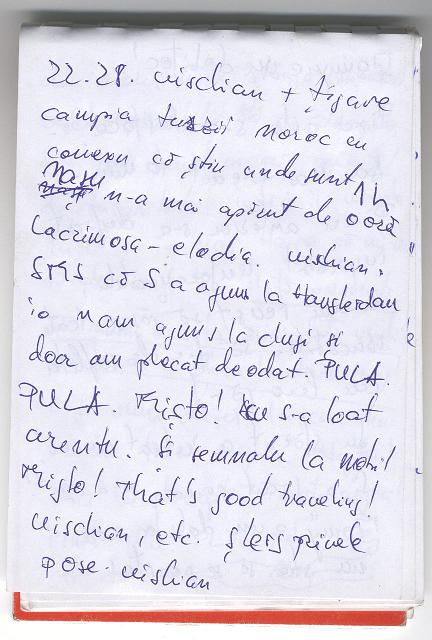 22.28. uischian + țigare
campia turzii noroc cu
conexu că știu unde sunt
Nașu n-a mai apărut de o oră 1h
Lacrimosa - elodia. uischian.
SMS că S a ajuns la Hamsterdam
io nam ajuns la cluji și
doar am plecat deodat. PULA.
PULA. Fristo! s-a loat
curentu. Și semnalu la mobil
Fristo! That's good traveling!
uischian, etc. șters
poze. uischian